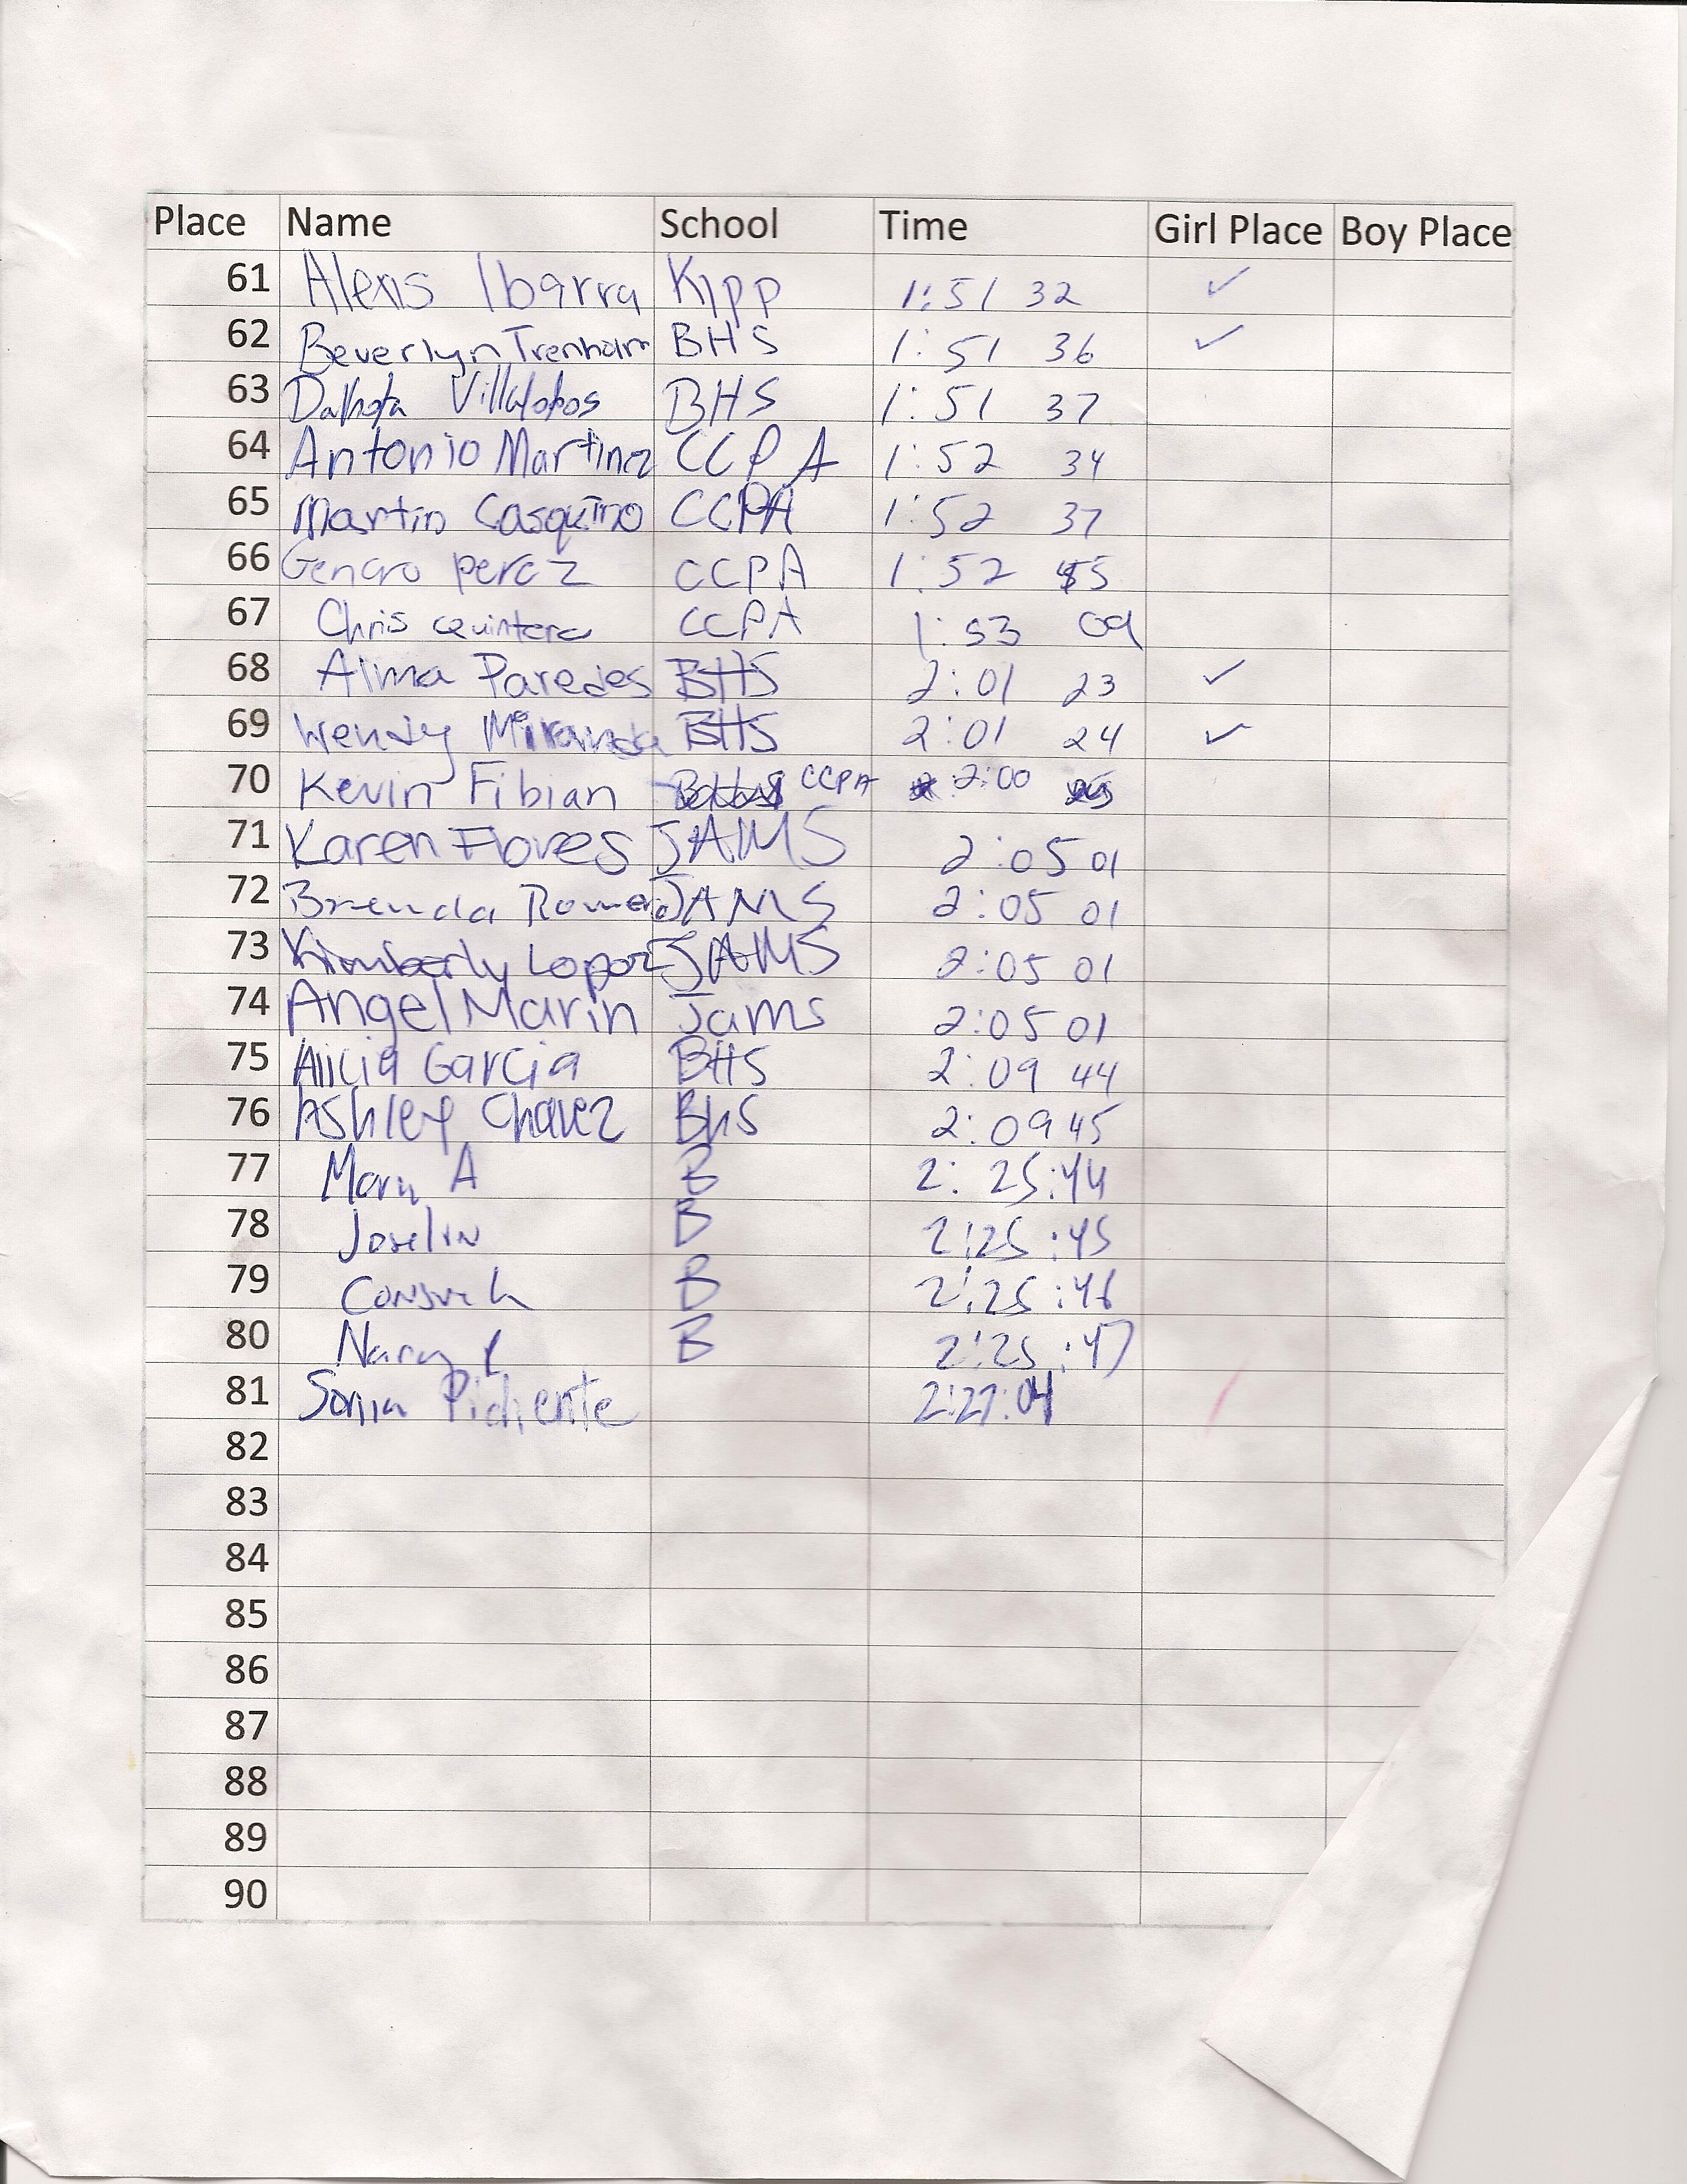 Place Name School Time Girl Place Boy Place
61 Alexis Ibarra Kipp 1:51 32 ✓
62 Beverlyn Trenham BHS 1:51 36 ✓
63 Dakota Villalobos BHS 1:51 37
64 Antonio Martinez CCPA 1:52 34
65 Martin Casquino CCPA 1:52 37
66 Genaro perez CCPA 1:52 55
67 Chris Quintero CCPA 1:53 09
68 Alma Paredes BHS 2:01 23 ✓
69 Wendy Miranda BHS 2:01 24 ✓
70 Kevin Fibian CCPA 2:00
71 Karen Flores JAMS 2:05 01
72 Brenda Romero JAMS 2:05 01
73 Kimberly Lopez JAMS 2:05 01
74 Angel Marin Jams 2:05 01
75 Alicia Garcia BHS 2:09 44
76 Ashley Chavez BHS 2:09 45
77 A B 2:25:44
78 Joselin B 2:25:45
79 B 2:25:46
80 B 2:25:47
81 2:27:04
82
83
84
85
86
87
88
89
90